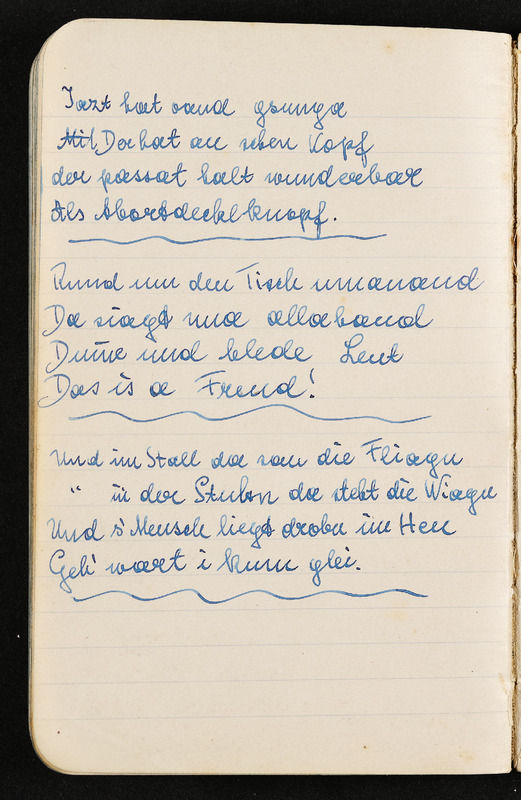 Jazt hat oand gsunga
Mit Der hat an schen Kopf
der passat halt wunderbar
Als Abortdecklknopf.
Rund um den Tisch umanand
Da siagt ma allahand
Dume und blede Leut
Das is a Freud!
Und im Stall da san die Fliagn
" in der Stubn da steht die Wiagn
Und s' Mensch liegt drobn im Heu
Geh' wart i kum glei.